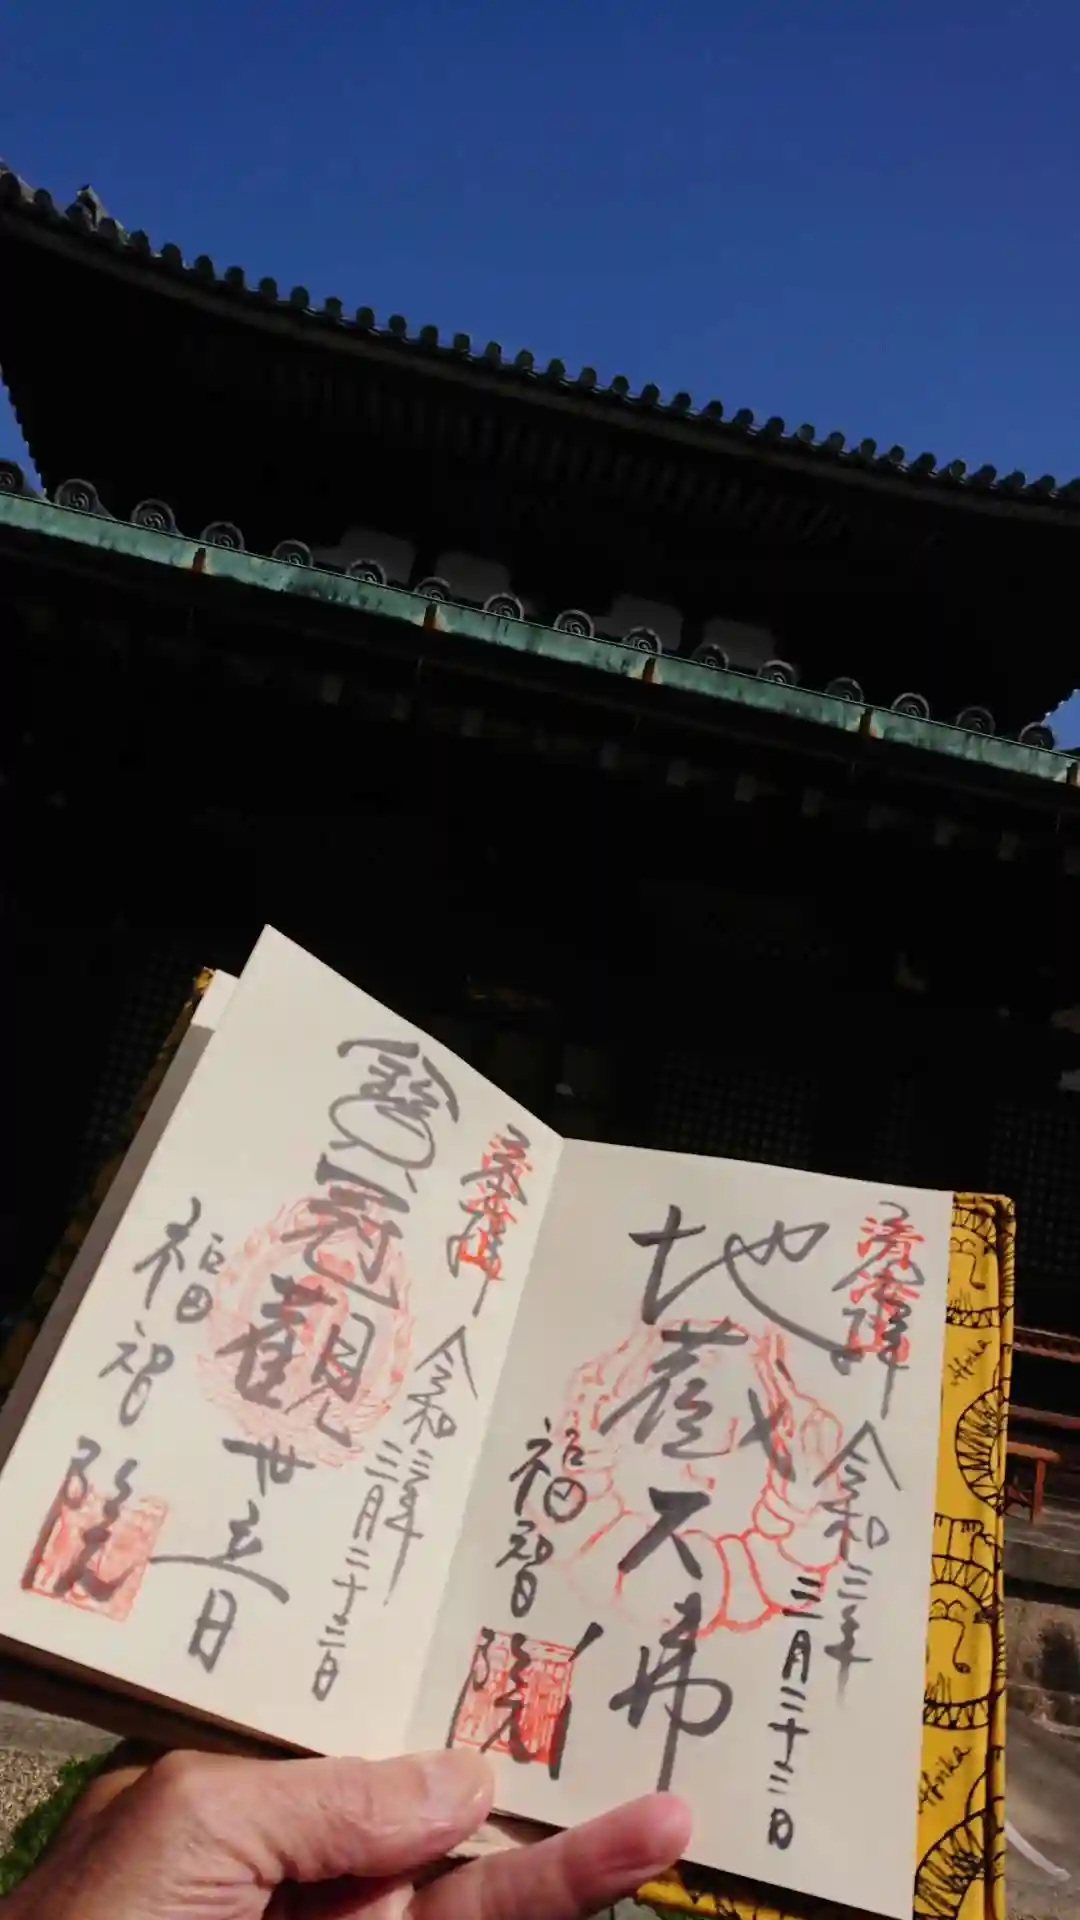 奉拝
清滝山
令和三年
三月二十三日
地蔵大
福智院
奉拝
令和三年
三月二十三日
寳冠
観世音
福智院
Afrika
Afrika